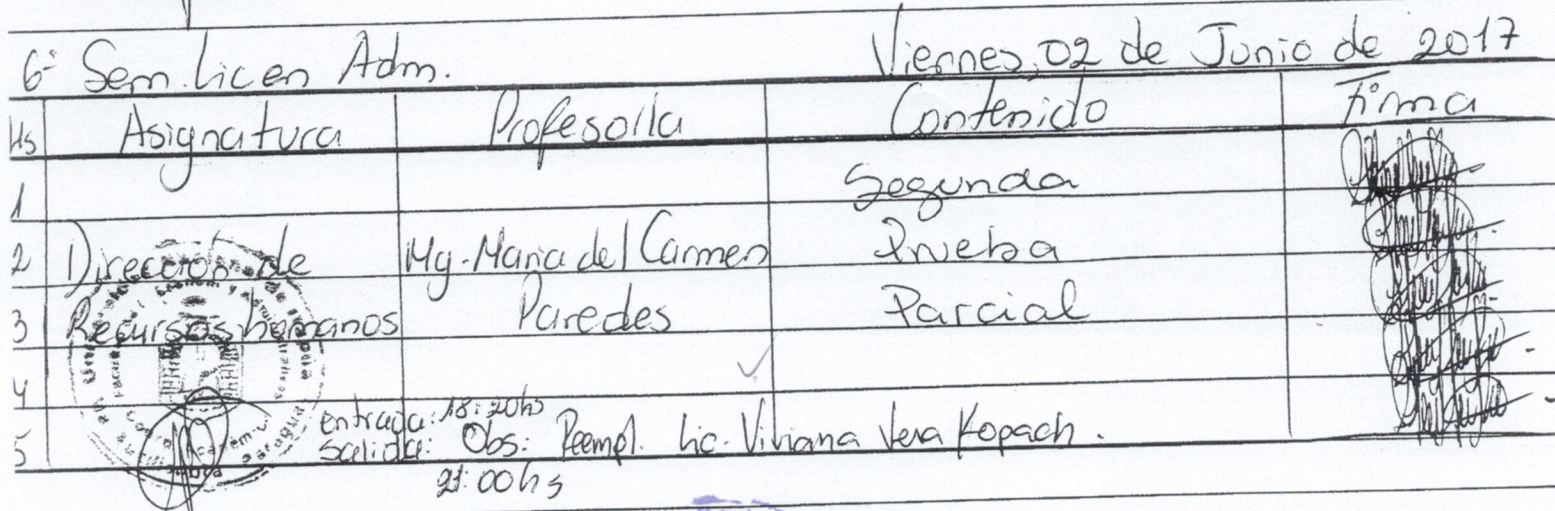 6º Sem. Licen Adm. Viernes, 02 de Junio de 2017
Hs Asignatura Profesor/a Contenido Firma
1 Segunda
2 Dirección de Mg. Maria del Carmen Prueba
3 Recursos humanos Paredes Parcial
4
entrada: 18:20hs
5 salida: Obs: Reempl. Lic. Viviana Vera Kopach.
21:00hs